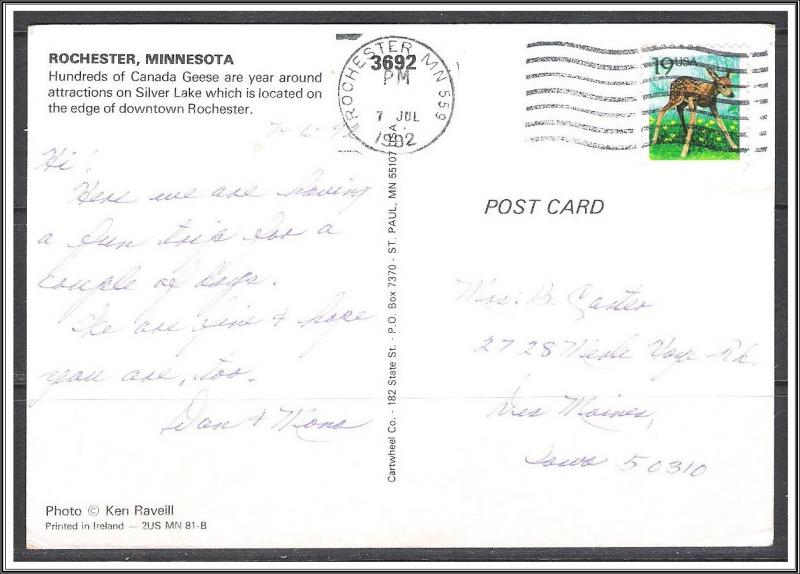 ROCHESTER, MINNESOTA
Hundreds of Canada Geese are year around
attractions on Silver Lake which is located on
the edge of downtown Rochester.
Hi!
Here we are having
a fun trip for a
couple of days.
We are fine & hope
you are, too.
Don & Mona
Photo © Ken Raveill
Printed in Ireland — 2US MN 81-B
Cartwheel Co. - 182 State St. - P.O. Box 7370 - ST. PAUL, MN 55107
ROCHESTER MN 559
3692
PM
7 JUL
1992
19USA
POST CARD
Mrs. B. Carter
2728 Merle Hay Rd.
Des Moines,
Iowa 50310